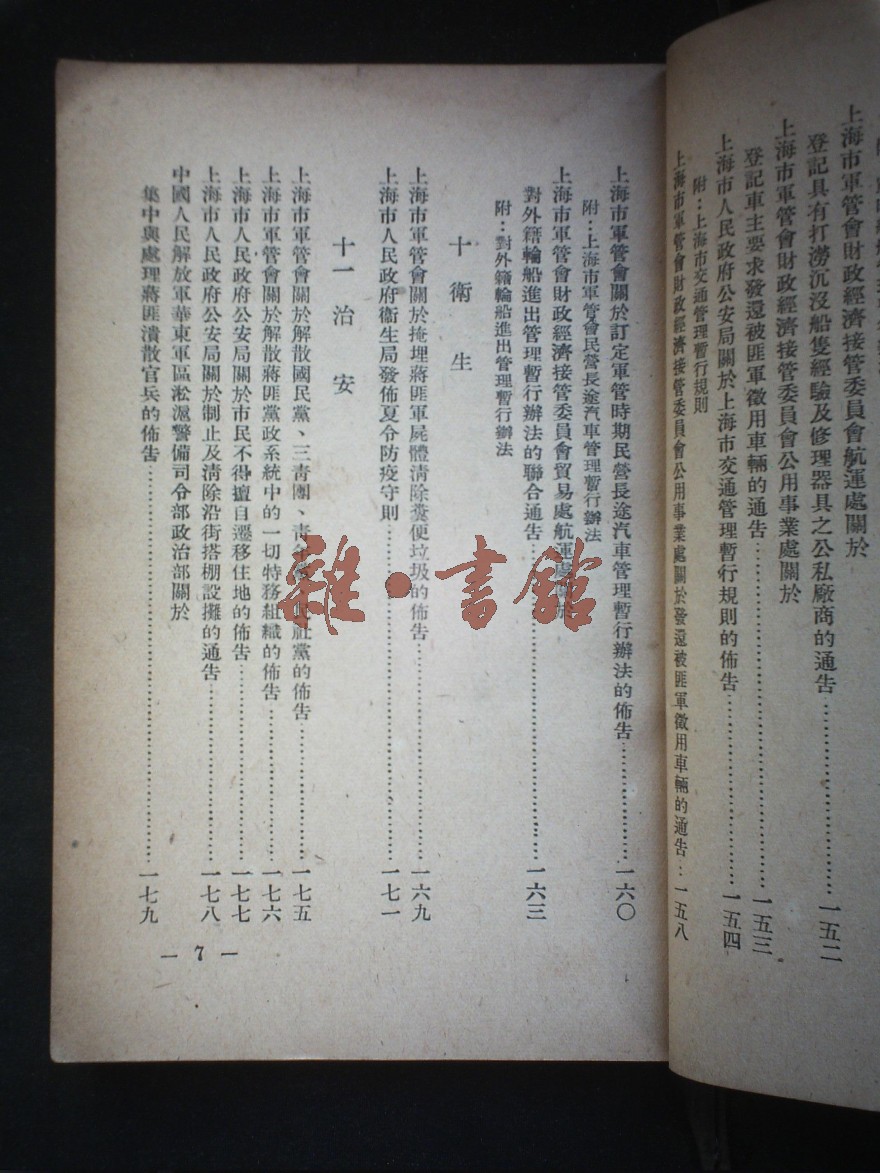 上海市軍管會財政經濟接管委員會航運處關於
登記具有打撈沉沒船隻經驗及修理器具之公私廠商的通告…………一五二
上海市軍管會財政經濟接管委員會公用事業處關於
登記車主要求發還被匪軍徵用車輛的通告…………一五三
上海市人民政府公安局關於上海市交通管理暫行規則的佈告…………一五四
附：上海市交通管理暫行規則
上海市軍管會財政經濟接管委員會公用事業處關於發還被匪軍徵用車輛的通告…一五八
上海市軍管會關於訂定軍管時期民營長途汽車管理暫行辦法的佈告…………一六〇
附：上海市軍管會民營長途汽車管理暫行辦法
上海市軍管會財政經濟接管委員會貿易處航運處關於
對外籍輪船進出管理暫行辦法的聯合通告…………一六三
附：對外籍輪船進出管理暫行辦法
十 衛生
上海市軍管會關於掩埋蔣匪軍屍體清除糞便垃圾的佈告…………一六九
上海市人民政府衛生局發佈夏令防疫守則…………一七一
十一 治安
上海市軍管會關於解散國民黨、三靑團、靑 社黨的佈告…………一七五
上海市軍管會關於解散蔣匪黨政系統中的一切特務組織的佈告…………一七六
上海市人民政府公安局關於市民不得擅自遷移住地的佈告…………一七七
上海市人民政府公安局關於制止及清除沿街搭棚設攤的通告…………一七八
中國人民解放軍華東軍區淞滬警備司令部政治部關於
集中與處理蔣匪潰散官兵的佈告…………一七九
— 7 —
雜·書館